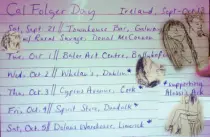 Cal Folger Day Ireland, Sept-Oct 19
Sat, Sept. 21 // Townhouse Bar, Galway
w/ Rural Savage, Donal McConnon
Tue, Oct. 1 // Balor Art Centre, Ballybofey
Wed, Oct. 2 // Whelan's, Dublin *
Thu, Oct. 3 // Cyprus Avenue, Cork *
* supporting
Alasdair Roberts
Fri, Oct. 4 // Spirit Store, Dundalk *
Sat, Oct. 5 // Dolans Warehouse, Limerick *